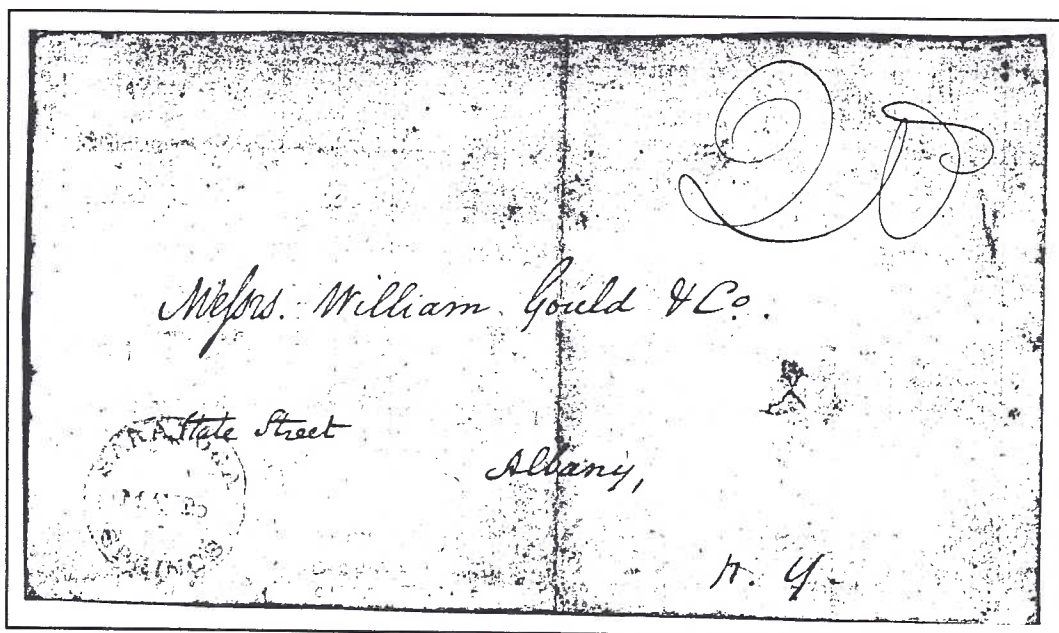 Messrs. William Gould & Co.
State Street
Albany,
N. Y.
SARATOGA
SPRINGS